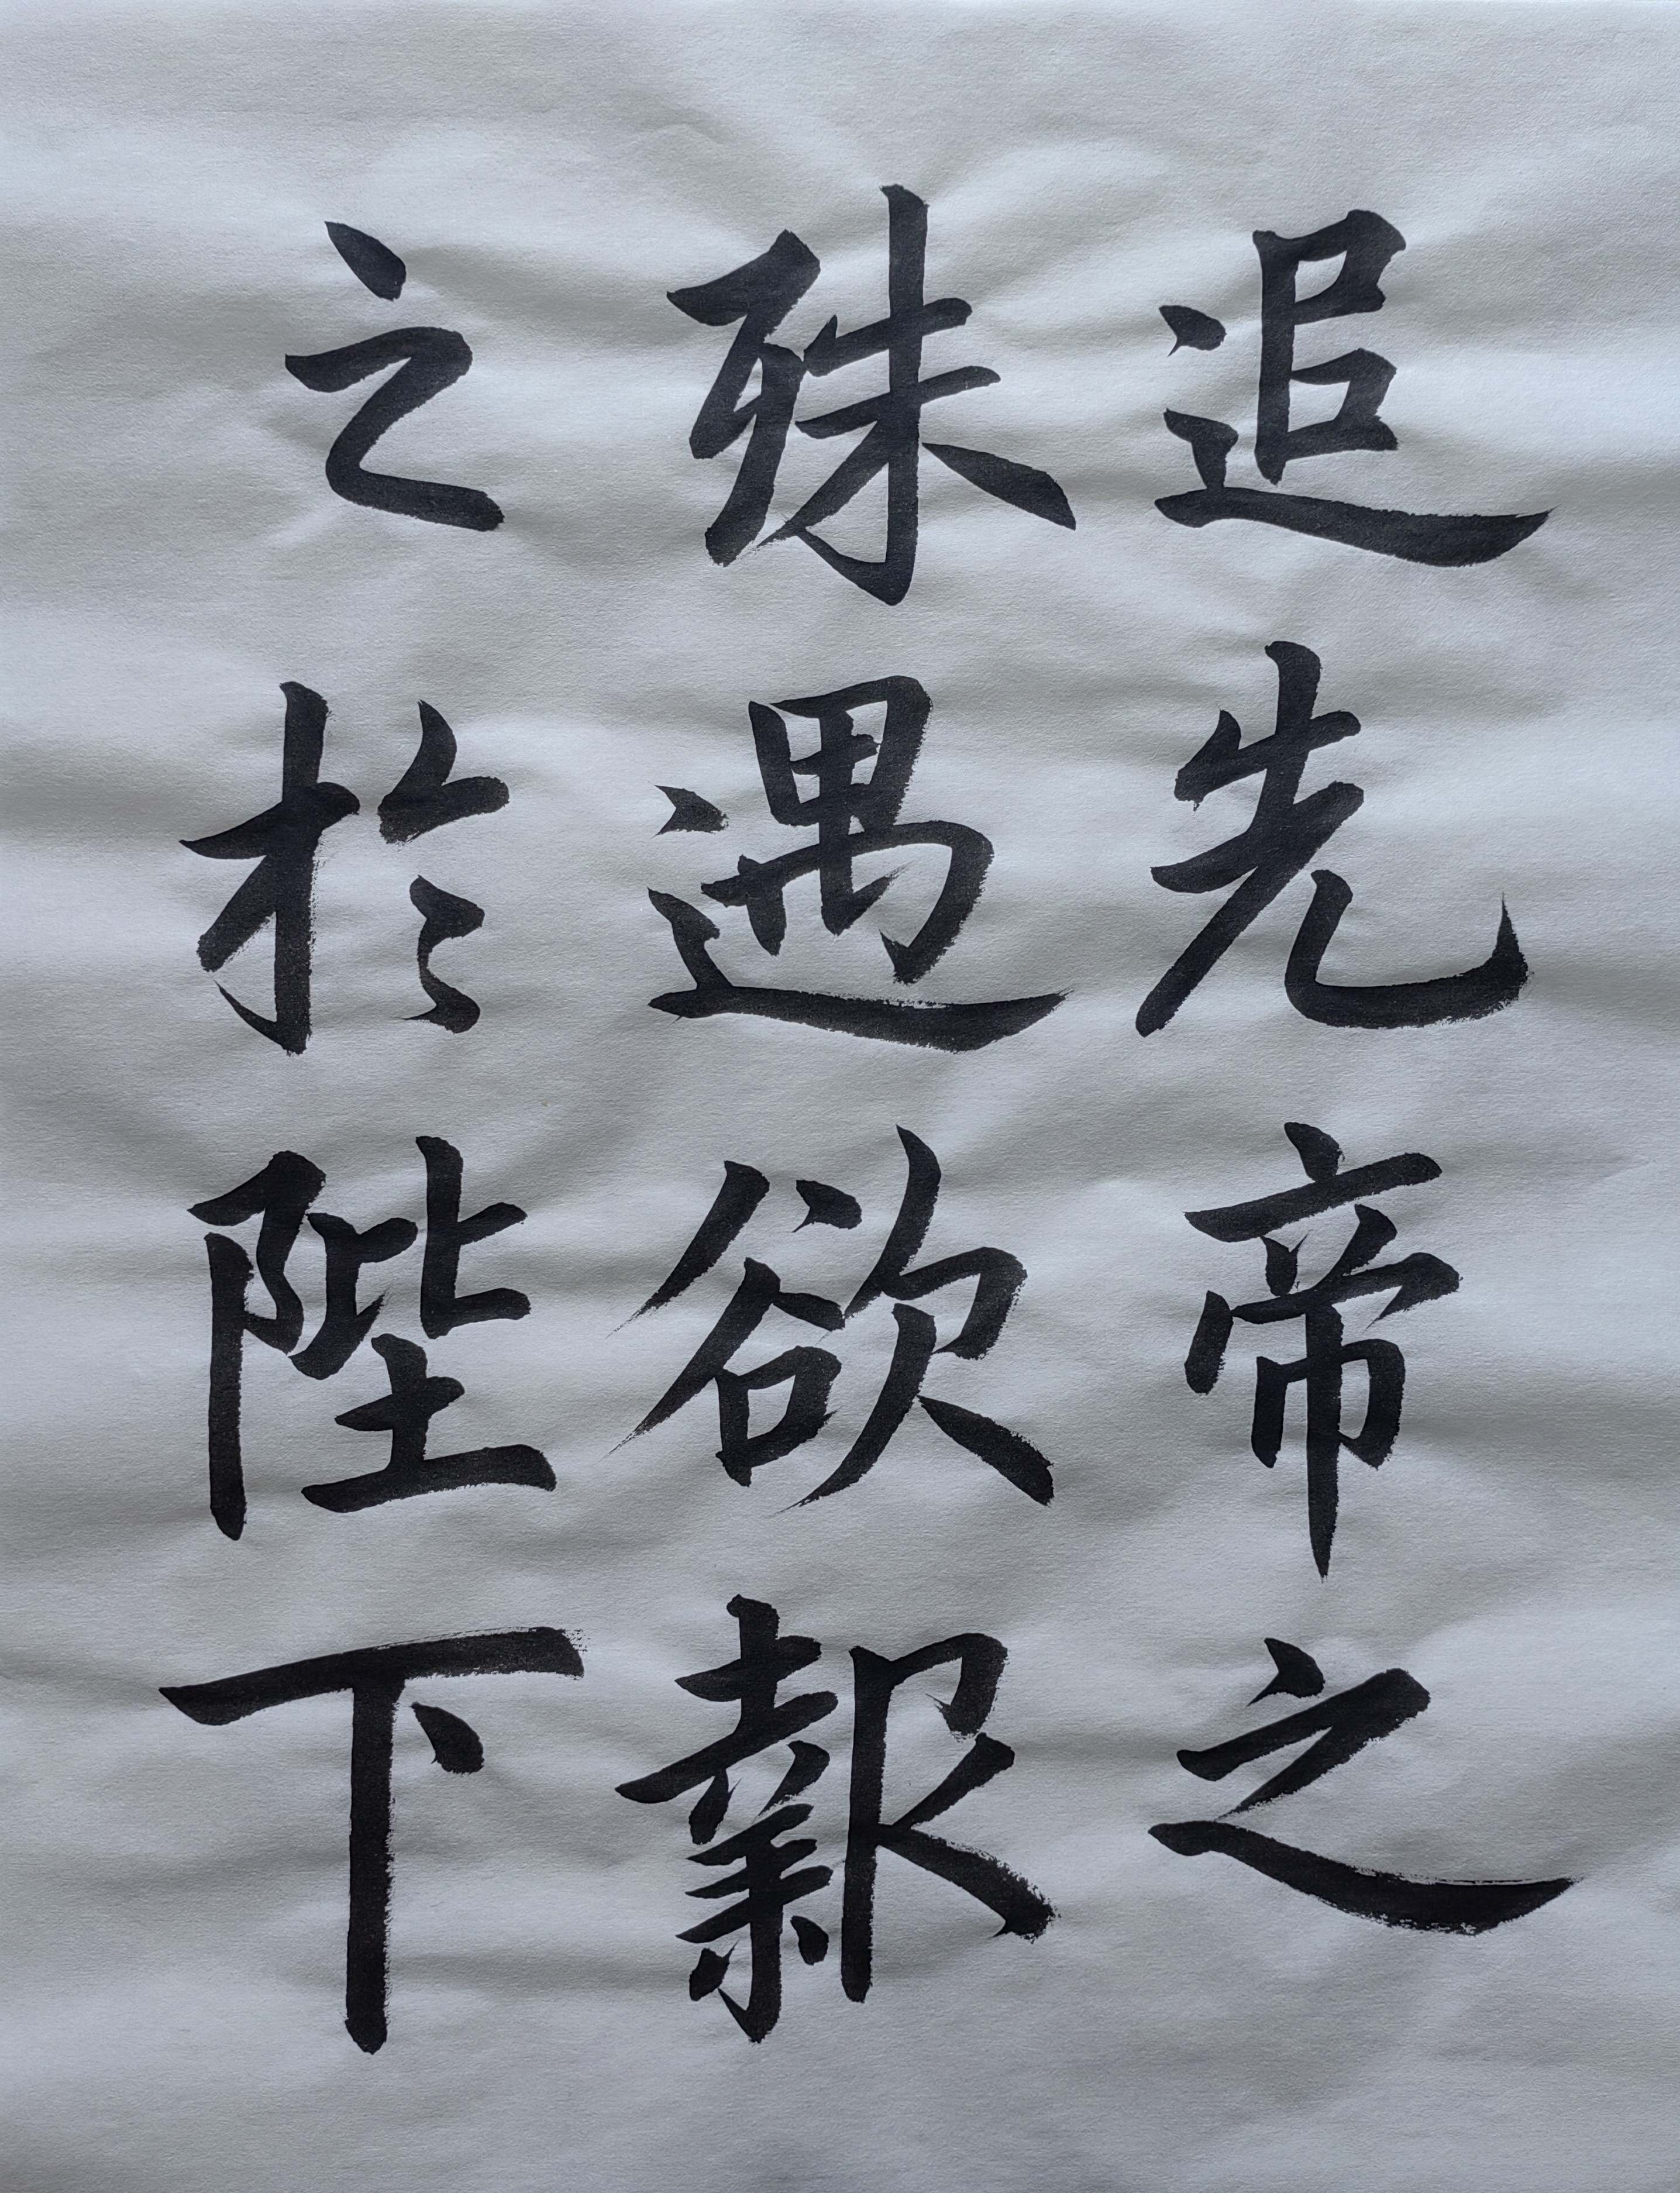 追先帝之
殊遇欲報
之於陛下